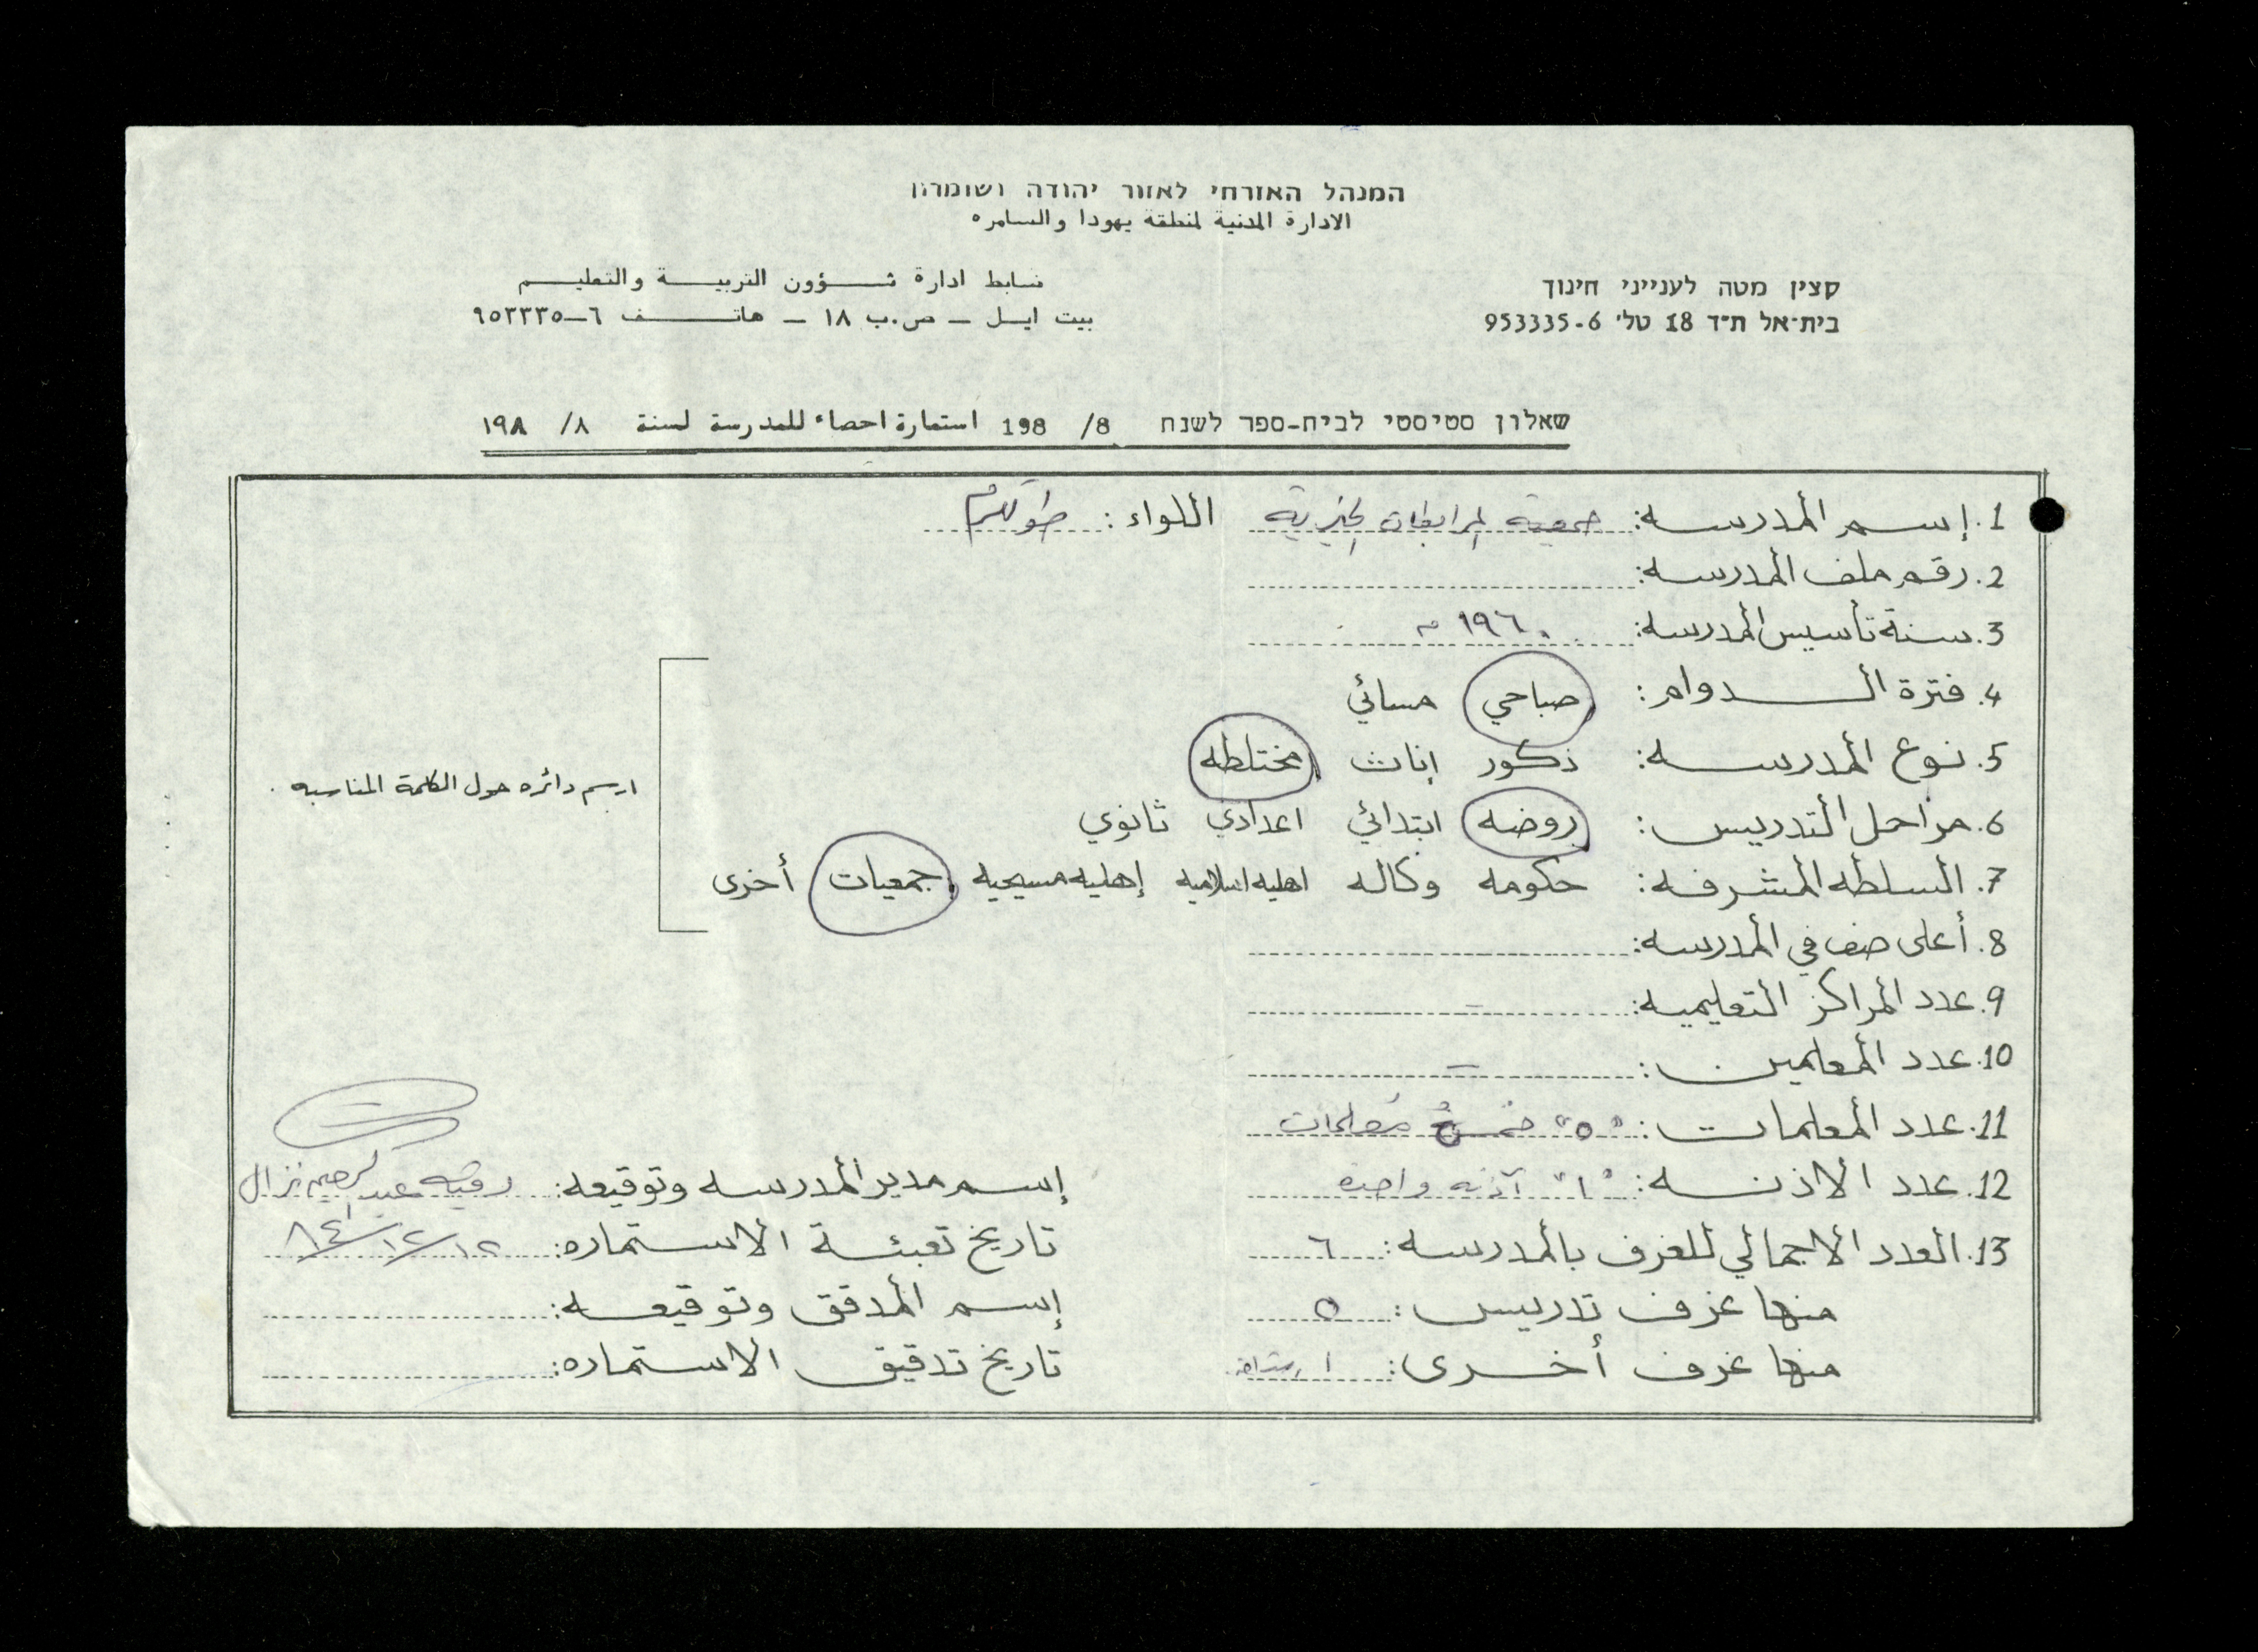 המנהל האזרחי לאזור יהודה ושומרון
الادارة المدنية لمنطقة يهودا والسامره
קצין מטה לענייני חינוך
בית־אל ת״ד 18 טל׳ 953335-6
ضابط ادارة شؤون التربية والتعليم
بيت ايل – ص.ب ١٨ – هاتف ٦–٩٥٣٣٣٥
שאלון סטיסטי לבית-ספר לשנת 198 /8 استمارة احصاء للمدرسة لسنة ١٩٨ /٨
1. إسم المدرسه: جمعية المرابطات الخيرية اللواء: طولكرم
2. رقم ملف المدرسه:
3. سنة تأسيس المدرسه: ١٩٦٠ م
4. فترة الدوام: صباحي مسائي
5. نوع المدرسه: ذكور إناث مختلطه
ارسم دائره حول الكلمة المناسبه.
6. مراحل التدريس: روضه ابتدائي اعدادي ثانوي
7. السلطه المشرفه: حكومه وكاله اهليه اسلاميه إهليه مسيحيه جمعيات أخرى
8. أعلى صف في المدرسه:
9. عدد المراكز التعليميه: –
10. عدد المعلمين: –
11. عدد المعلمات: "٥" خمسُ مُعلمات
12. عدد الاذنه: "١" آذنه واحده
إسم مدير المدرسه وتوقيعه: رقيه عبد الرحيم نزال
13. العدد الاجمالي للغرف بالمدرسه: ٦
تاريخ تعبئة الاستماره: ١٢/١٢/٨٤
منها غرف تدريس: ٥
إسم المدقق وتوقيعه:
منها غرف أخرى: ١
تاريخ تدقيق الاستماره: